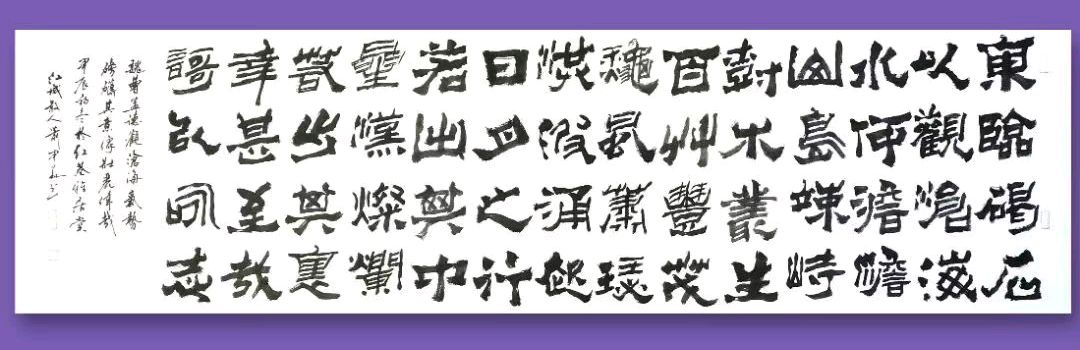 東臨碣石
以觀滄海
水何澹澹
山島竦峙
樹木叢生
百艸豐茂
龝風蕭瑟
洪波涌起
日月之行
若出其中
星漢燦爛
若出其裏
幸甚至哉
謌以咏志
魏曹孟德觀滄海氣勢
磅礴其意深壯麗偉哉
甲辰初冬於紅
江城散人